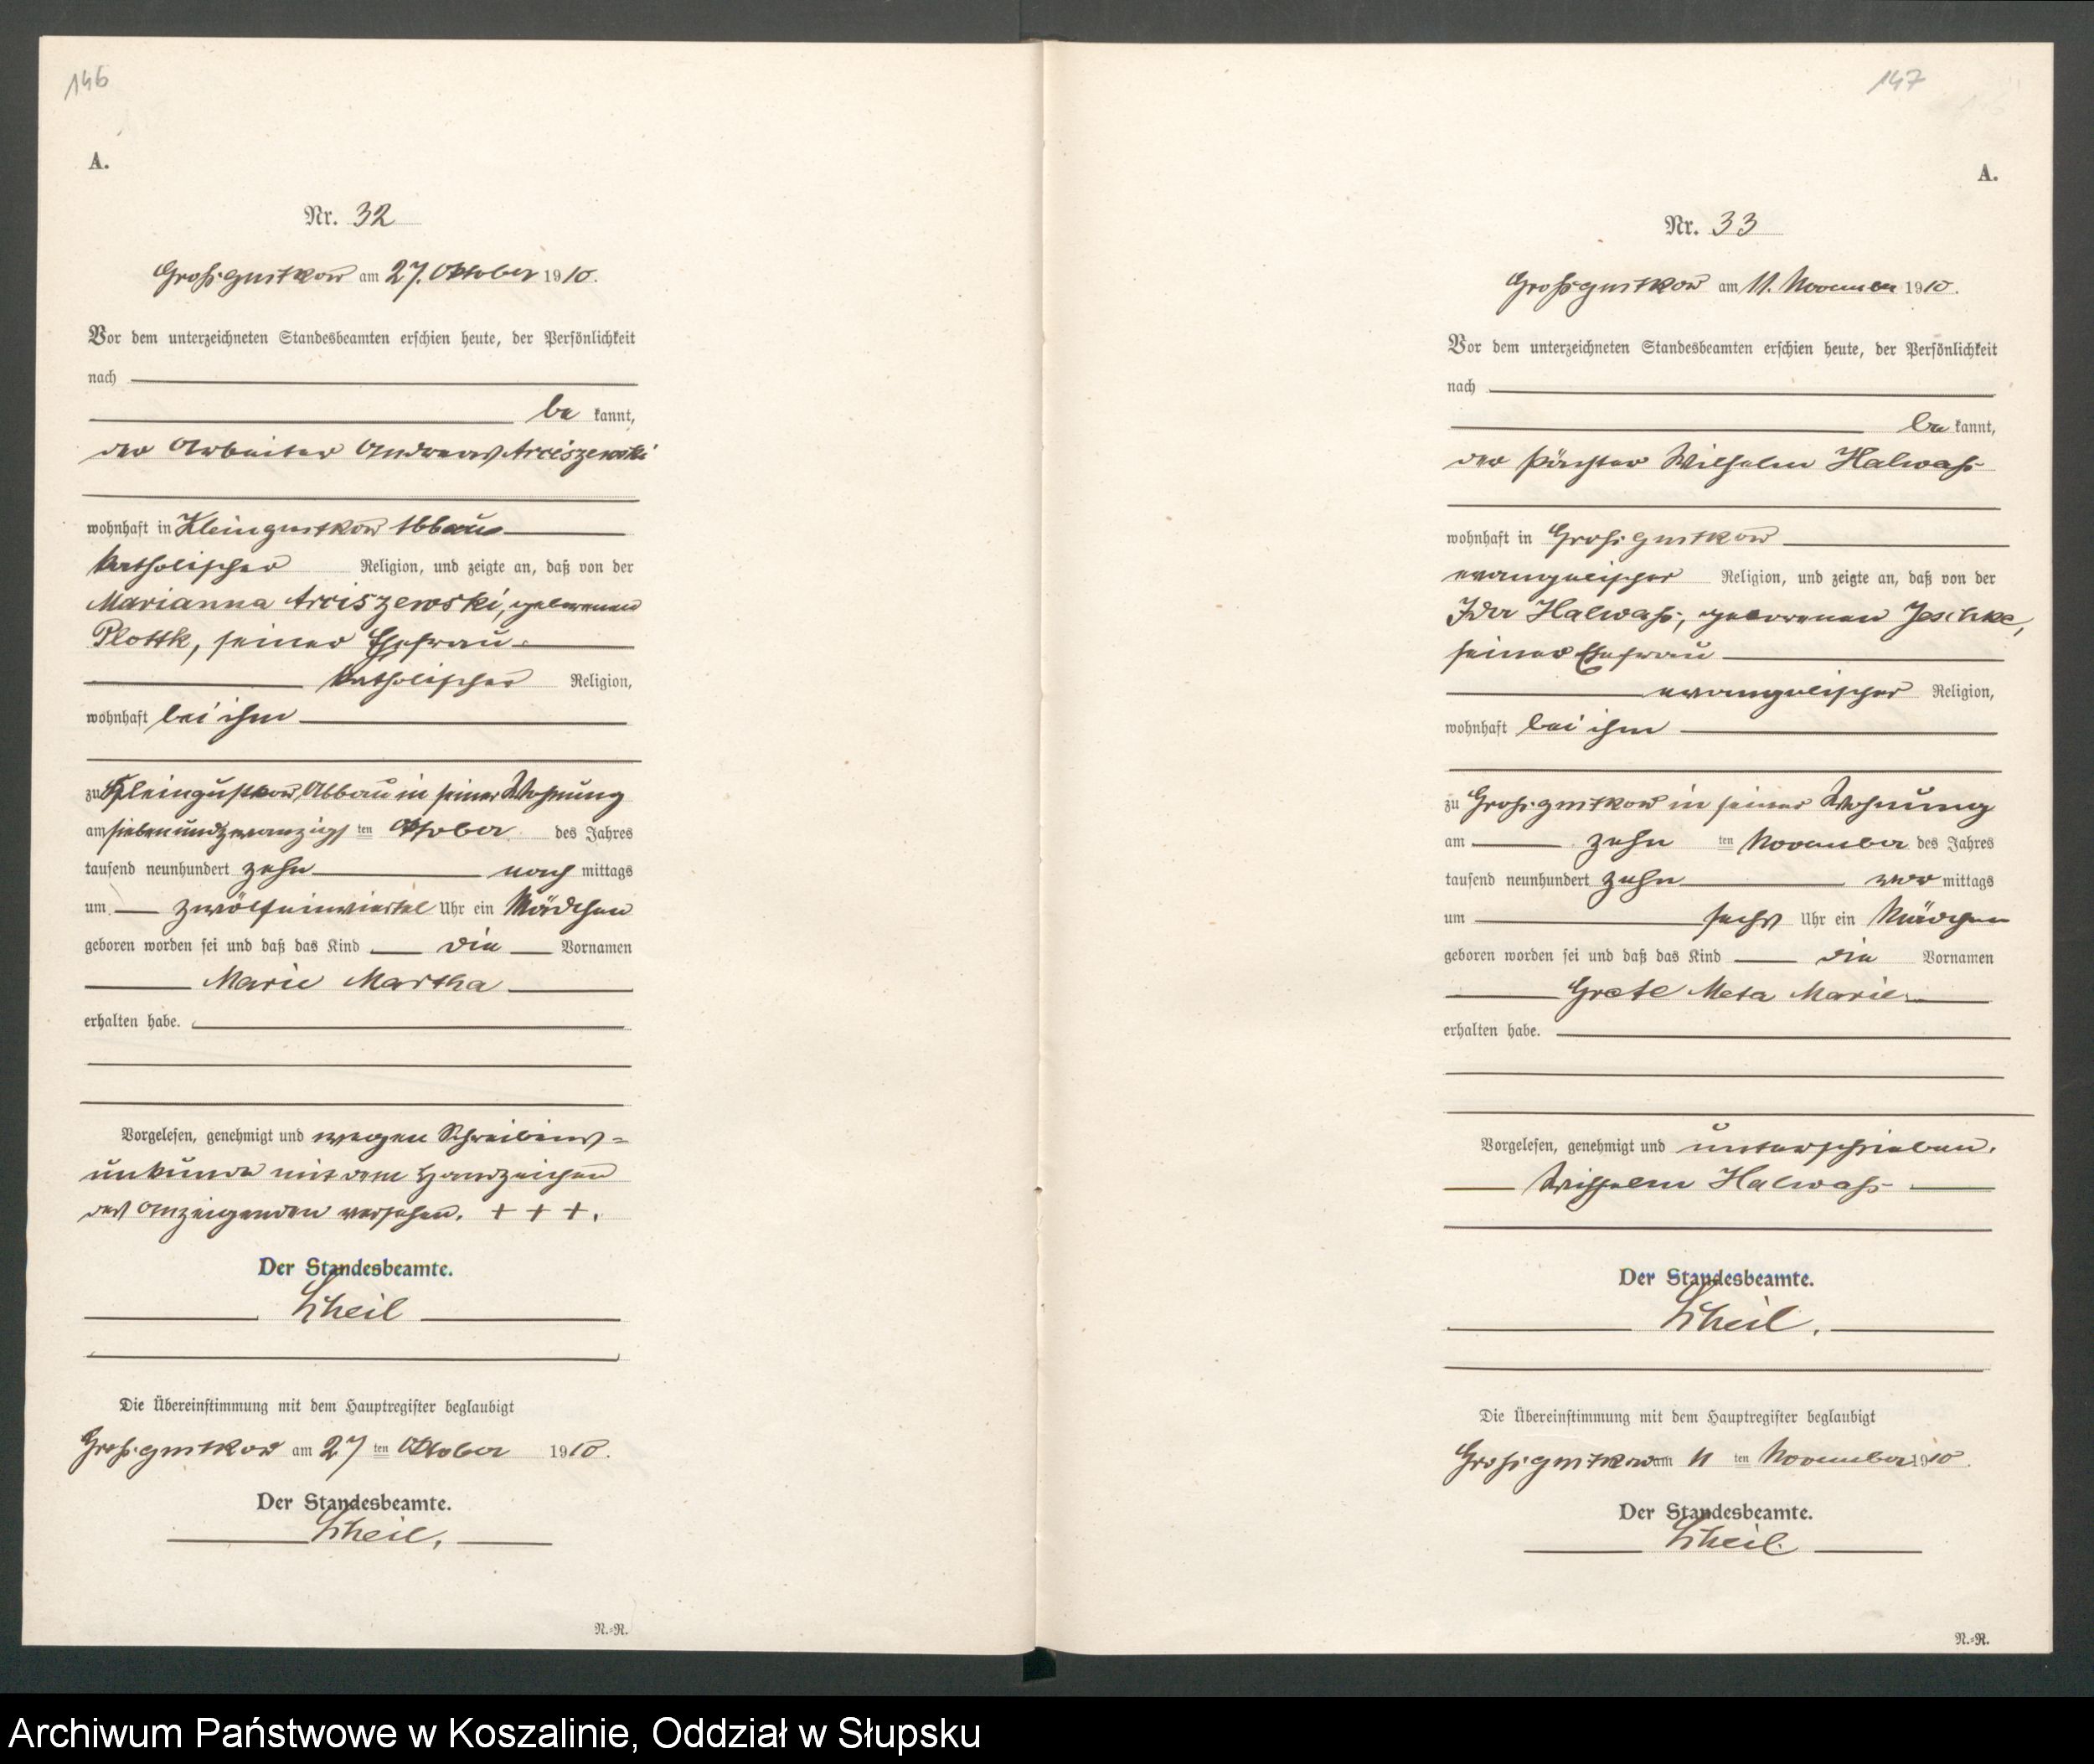 146
A.
Nr. 32
Großgustkow am 27. Oktober 1910.
Vor dem unterzeichneten Standesbeamten erschien heute, der Persönlichkeit
nach
be kannt,
der Arbeiter Andreas Arciszewski
wohnhaft in Kleingustkow Abbau
katholischer Religion, und zeigte an, daß von der
Marianna Arciszewski, geborenen
Plottk, seiner Ehefrau
katholischer Religion,
wohnhaft bei ihm
zu Kleingustkow, Abbau in seiner Wohnung
am siebenundzwanzigs ten Oktober des Jahres
tausend neunhundert zehn nach mittags
um zwölfeinviertel Uhr ein Mädchen
geboren worden sei und daß das Kind die Vornamen
Marie Martha
erhalten habe.
Vorgelesen, genehmigt und wegen Schreibens-
unkunde mit dem Handzeichen
des Anzeigenden versehen. + + +.
Der Standesbeamte.
Theil
Die Übereinstimmung mit dem Hauptregister beglaubigt
Großgustkow am 27 ten Oktober 1910.
Der Standesbeamte.
Theil.
N.=R.
147
A.
Nr. 33
Großgustkow am 11. November 1910.
Vor dem unterzeichneten Standesbeamten erschien heute, der Persönlichkeit
nach
be kannt,
der Pächter Wilhelm Halwaß
wohnhaft in Großgustkow
evangelischer Religion, und zeigte an, daß von der
Ida Halwaß, geborenen Jeschke,
seiner Ehefrau
evangelischer Religion,
wohnhaft bei ihm
zu Großgustkow in seiner Wohnung
am zehn ten November des Jahres
tausend neunhundert zehn vor mittags
um sechs Uhr ein Mädchen
geboren worden sei und daß das Kind die Vornamen
Grete Meta Marie
erhalten habe.
Vorgelesen, genehmigt und unterschrieben.
Wilhelm Halwaß
Der Standesbeamte.
Theil.
Die Übereinstimmung mit dem Hauptregister beglaubigt
Großgustkow am 11 ten November 1910.
Der Standesbeamte.
Theil.
N.=R.
Archiwum Państwowe w Koszalinie, Oddział w Słupsku